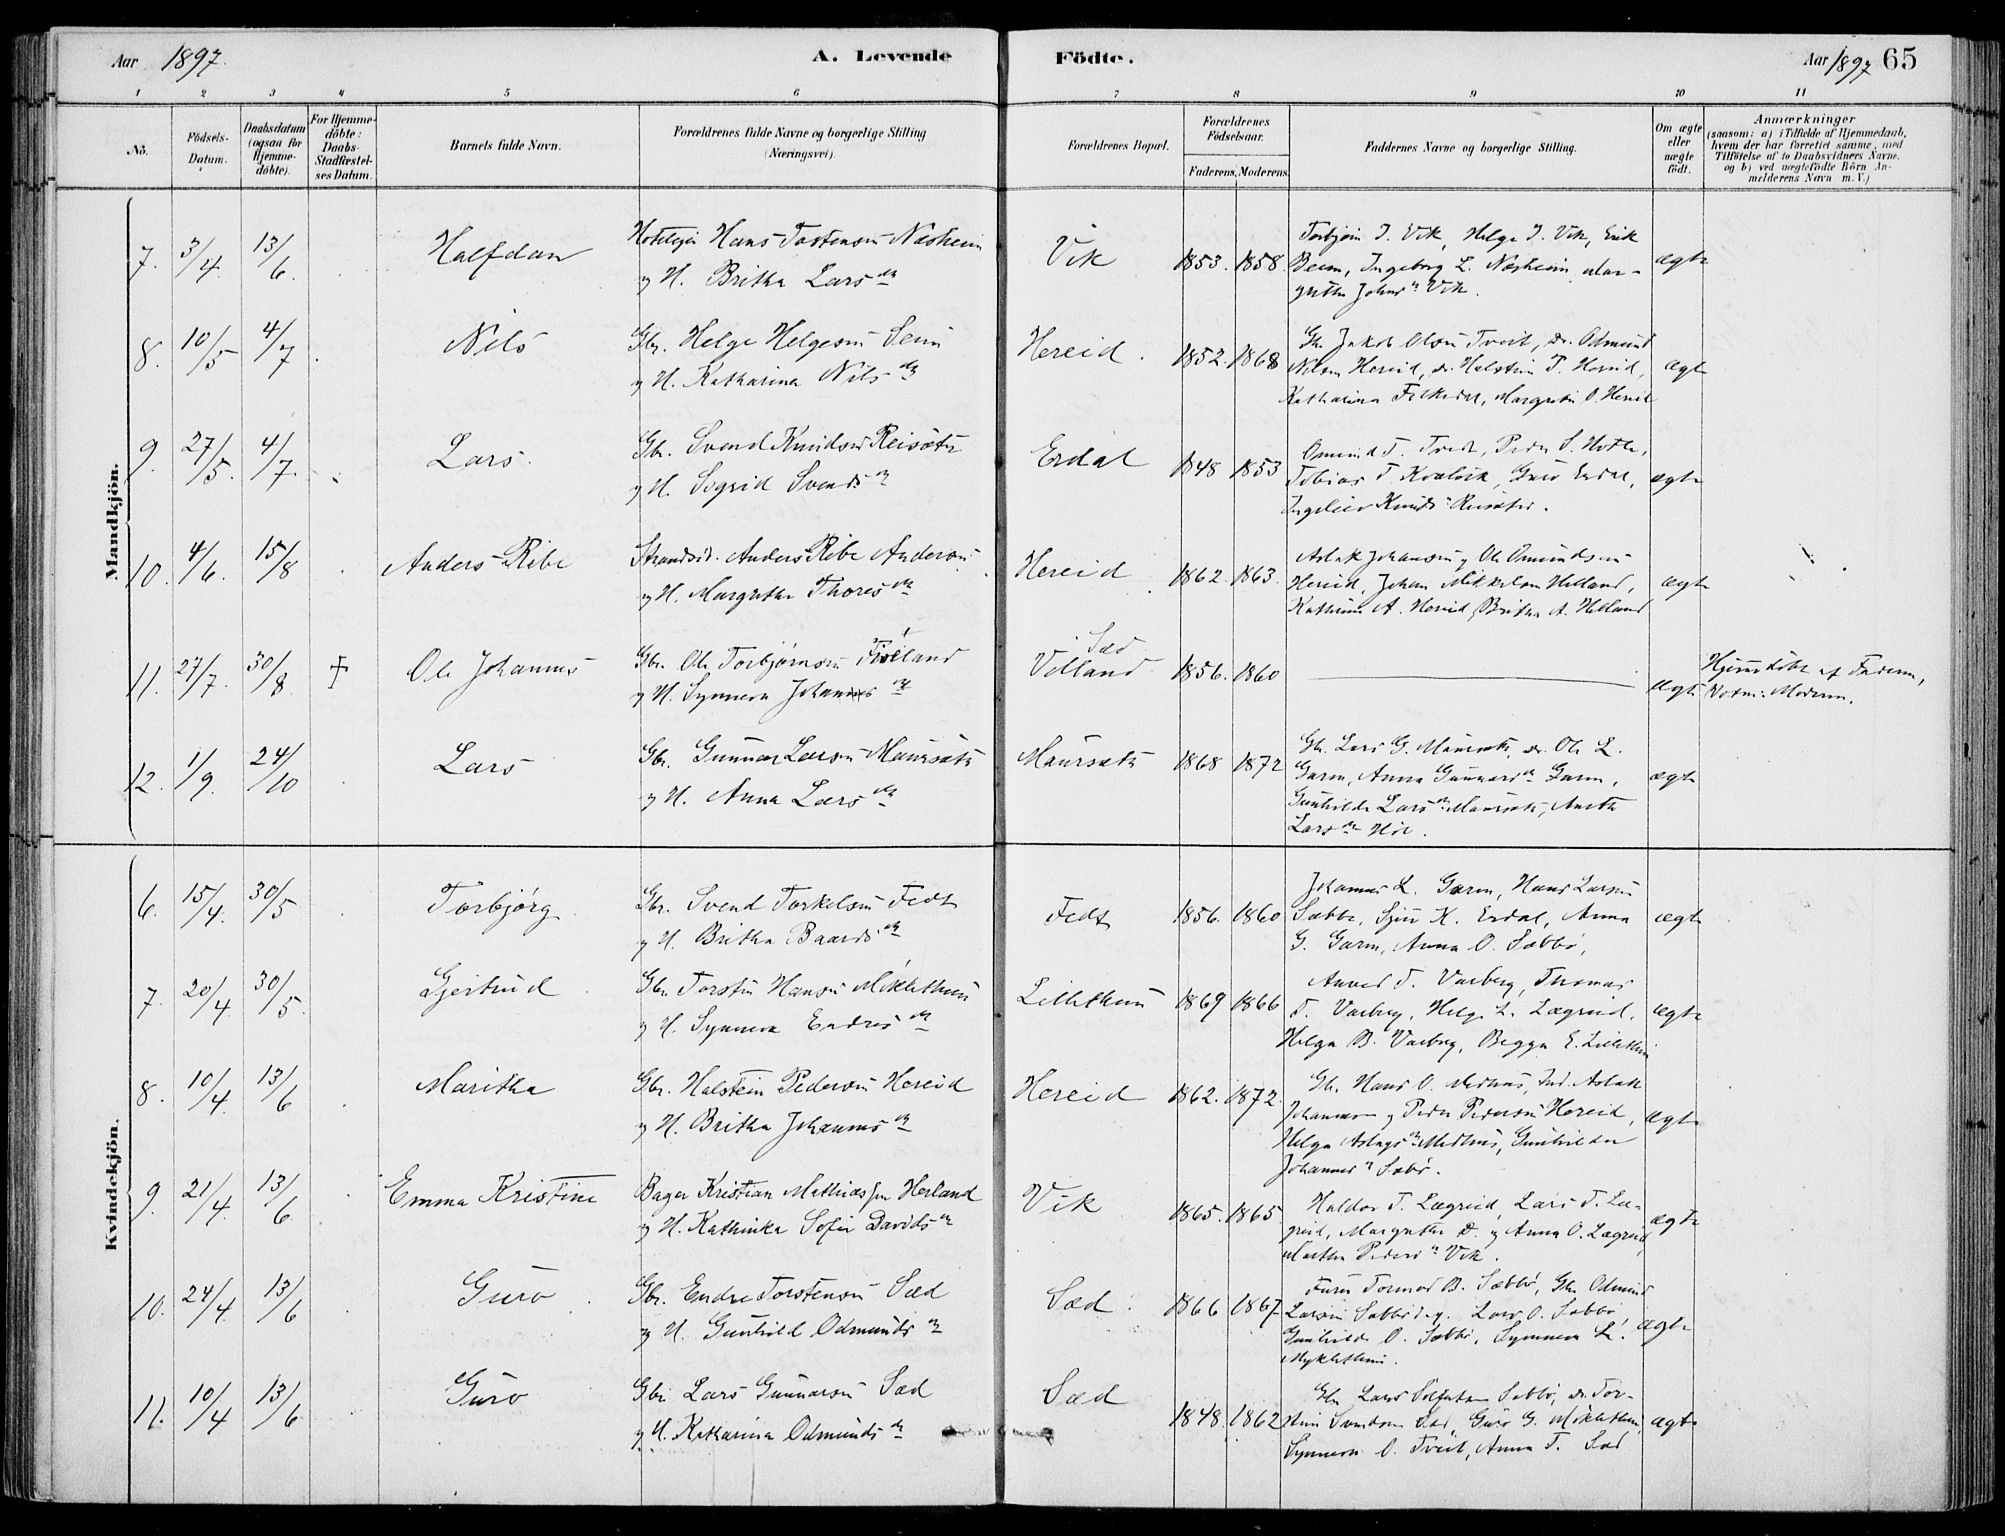 Aar 1897. A. Levende Födte. Aar 1897 65
1 2 3 4 5 6 7 8 9 10 11
No. Födsels-Datum. Daabsdatum (ogsaa for Hjemme-döbte). For Hjemme-döbte: Daabs-Stadfæstel-ses Datum. Barnets fulde Navn. Forældrenes fulde Navne og borgerlige Stilling (Næringsvei). Forældrenes Bopæl. Forældrenes Födselsaar. Faderens. Moderens. Faddernes Navne og borgerlige Stilling. Om ægte eller uægte födt. Anmærkninger (saasom: a) i Tilfælde af Hjemmedaab, hvem der har forrettet samme, med Tilföielse af to Daabsvidners Navne, og b) ved uægtefödte Börn An-melderens Navn m. V.)
Mandkjön.
7. 3/4 13/6. Halfdan Hans Torstensen Næsheim
og H. Britha Larsdr Vik 1853. 1858. Torbjørn J. Vik, Helge J. Vik, Erik
Ingeborg L. Næsheim, Mar-
gretha Johnsdr Vik. ægte
8. 10/5 4/7 Nils Gbr. Helge Helgesen
og H. Katharina Nilsdr Hereid. 1852. 1868 Gbr. Jakob Olsen Tveit, do. Odmund
Nilsen Hereid, do. Halstein P. Hereid,
Katharina Margretha O. Hereid ægte
9. 27/5. 4/7. Lars. Gbr. Svend Knudsen Reisæter
og H. Sigrid Svendsdr Erdal 1848 1853 Omund T. Tveit, Peder S.
Tobias T. Guro Erdal,
Knudsdr Reisæter. ægte
10. 4/6. 15/8 Anders Ribe Strandsid. Anders Ribe Anderson
og H. Margretha Thoresdr Hereid 1862. 1863. Aslak Johanson og Ole Omundsen
Hereid, Johan Mikkelson Helland,
A. Hereid, Britha A. Helland ægte
11. 27/7. 30/8 ‡ Ole Johannes Gbr. Ole Torbjørnson
og H. Synneva Johannesdr Sæd
Volland 1856. 1860 ægte Hjemdøbt af Faderen,
Moderen.
12. 1/9. 24/10 Lars Gbr. Gunnar Larsen Maursæth
og H. Anna Larsdr Maursæth 1868 1872 Gbr. Lars G. Maursæth, do. Ole L.
Garen, Anna Gunnarsdr Garen,
Gunhilda Larsdr Maursæth,
Larsdr ægte
Kvindekjön.
6. 15/4. 30/5 Torbjørg Gbr. Svend Torkelsen Fedt
og H. Britha Baardsdr Fedt 1856. 1860 Johannes L. Garen, Hans Larsen
Sæbbø, K. Erdal, Anna
G. Garen, Anna O. Sæbbø. ægte
7. 20/4 30/5. Gjertrud Gbr. Torstein Hansen Miklethun
og H. Synneva Endresdr Lillethun 1869 1866 T. Varberg, Thomas
T. Varberg, Helge L. Lægreid,
Helga B. Varberg, Begga E. Lillethun ægte
8. 10/4. 13/6 Maritha Gbr. Halstein Pederson Hereid
og H. Britha Johannesdr Hereid 1862. 1872. Gbr. Hans O. Medhus, Ind. Aslak
Johannesen og Peder Pedersen Hereid,
Helga Aslagsdr Medhus, Gunhilda
Johannesdr Sæbø. ægte
9. 21/4. 13/6. Emma Kristine Bager Kristian Mathiassen Herland
og H. Kathinka Sofie Davidsdr Vik 1865. 1865 Haldor T. Lægreid, Lars T. Læ-
greid, Margretha D. og Anna O. Lægreid,
Martha Pedersdr Vik. ægte
10. 24/4. 13/6 Guro Gbr. Endre Torstensen Sæd
og H. Gunhild Odmundsdr Sæd. 1866 1867 Tormod B. Sæbbø, Gbr. Odmund
Larsen Sæbbø, Lars O. Sæbbø
Gunhilda O. Sæbbø, Synneva L.
Myklethun. ægte
11. 10/4 13/6 Guro Gbr. Lars Gunnarsen Sæd
og H. Katharina Odmundsdr Sæd 1848. 1862 Gbr. Lars Sæbbø, do. Tor-
stein Svendsen Sæd, Guro G. Miklethun,
Synneva O. Tveit, Anna T. Sæd ægte